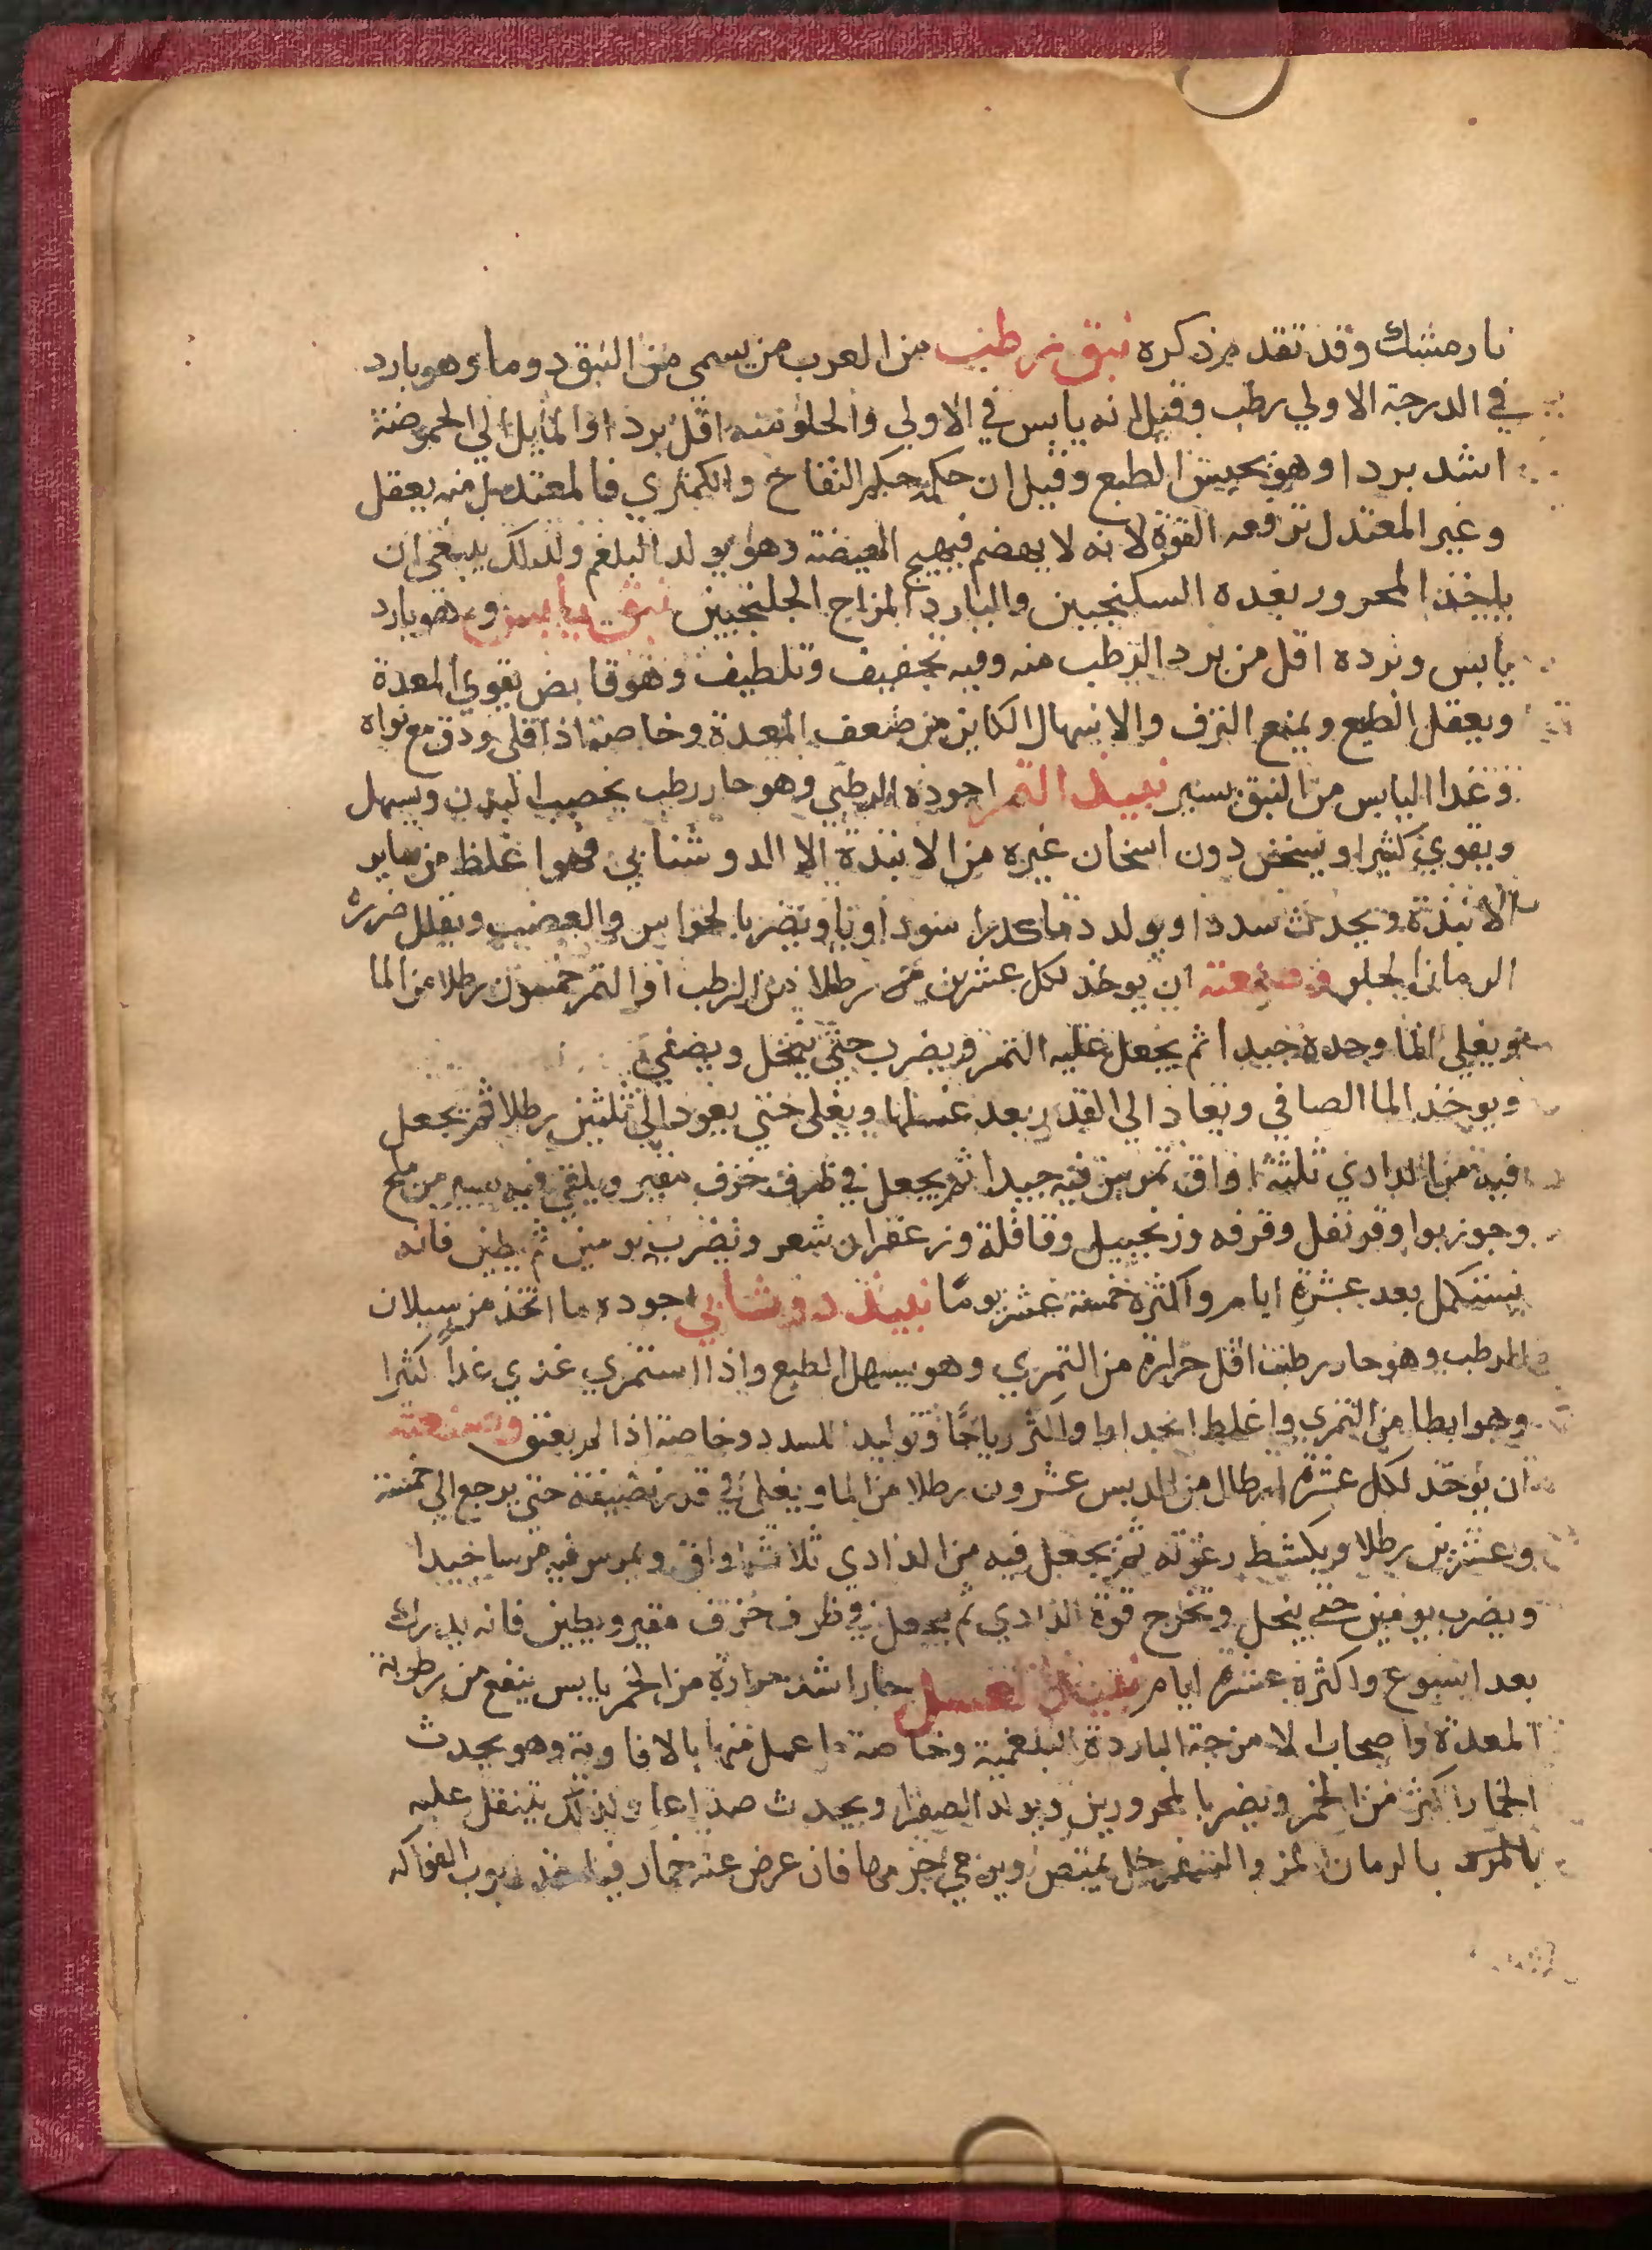 نارمشك وقد تقدم ذكره نبق رطب من العرب من يسمي من النبق دوما وهو بارد
في الدرجة الاولي رطب وقيل انه يابس في الاولي والحلو منه اقل بردا والمايل الي الحموضة
اشد بردا وهو يحبس الطبع وقيل ان حكمه حكم التفاح والكمثري فالمعتدل منه يعقل
وغير المعتدل ترفعه القوة لانه لا يهضم فيهيج الهيضة وهو يولد البلغم ولذلك ينبغي ان
ياخذ المحرور بعده السكنجبين والبارد المزاج الجلنجبين نبق يابس وهو بارد
يابس وبرده اقل من برد الرطب منه وفيه تجفيف وتلطيف وهو قابض يقوي المعدة
ويعقل الطبع ويمنع النزف والاسهال الكاين من ضعف المعدة وخاصة اذا قلي ودق مع نواه
وغذا اليابس من النبق يسير نبيذ التمر اجوده الرطبي وهو حار رطب يخصب البدن ويسهل
ويقوي كثيرا ويسخن دون اسخان غيره من الانبذة الا الدوشابي فهو اغلظ من ساير
الانبذة ويحدث سددا ويولد دما كدرا سوداويا ويضر بالحواس والعصب ويقلل ضرره
الرمان الحلو وصنعته ان يوخذ لكل عشرين رطلا من الرطب او التمر خمسون رطلا من الما
ويغلي الما وحده جيدا ثم يجعل عليه التمر ويضرب حتي ينحل ويصفي
ويوخذ الما الصافي ويعاد الي القدر بعد غسلها ويغلي حتي يعود الي ثلثين رطلا ثم يجعل
فيه من الدادي ثلثة اواق تمرس فيه جيدا ثم يجعل في ظرف خزف مقير ويلقي فيه يسير من ملح
وجوزبوا وقرنفل وقرفه وزنجبيل وقاقلة وزعفران شعر ويضرب يومين ثم يطين فانه
يستكمل بعد عشرة ايام واكثره خمسة عشر يوما نبيذ دوشابي اجوده ما اتخذ من سيلان
الرطب وهو حار رطب اقل حرارة من التمري وهو يسهل الطبع واذا استمري غذي غذا كثيرا
وهو ابطا من التمري واغلظ انحدارا واكثر رياحا وتوليدا للسدد وخاصة اذا لم يعتق وصنعته
ان يوخذ لكل عشرة ارطال من الدبس عشرون رطلا من الما ويغلي في قدر نضيفة حتي يرجع الي خمسة
وعشرين رطلا ويكشط رغوته ثم يجعل فيه من الدادي ثلاث اواق ويمرس فيه مرسا جيدا
ويضرب يومين حتي ينحل وتخرج قوة الدادي ثم يجعل في ظرف خزف مقير ويطين فانه يدرك
بعد اسبوع واكثره عشرة ايام نبيذ العسل حار اشد حرارة من الخمر يابس ينفع من رطوبة
المعدة واصحاب الامزجة الباردة البلغمية وخاصة ما عمل منها بالافاوية وهو يحدث
الخمار اكثر من الخمر ويضر بالمحرورين ويولد الصفرا ويحدث صداعا ولذلك يتنقل عليه
بالمز بالرمان المز والسفرجل يمتص ويرمي جرمها فان عرض عنه خمار فياخذ ربوب الفواكه